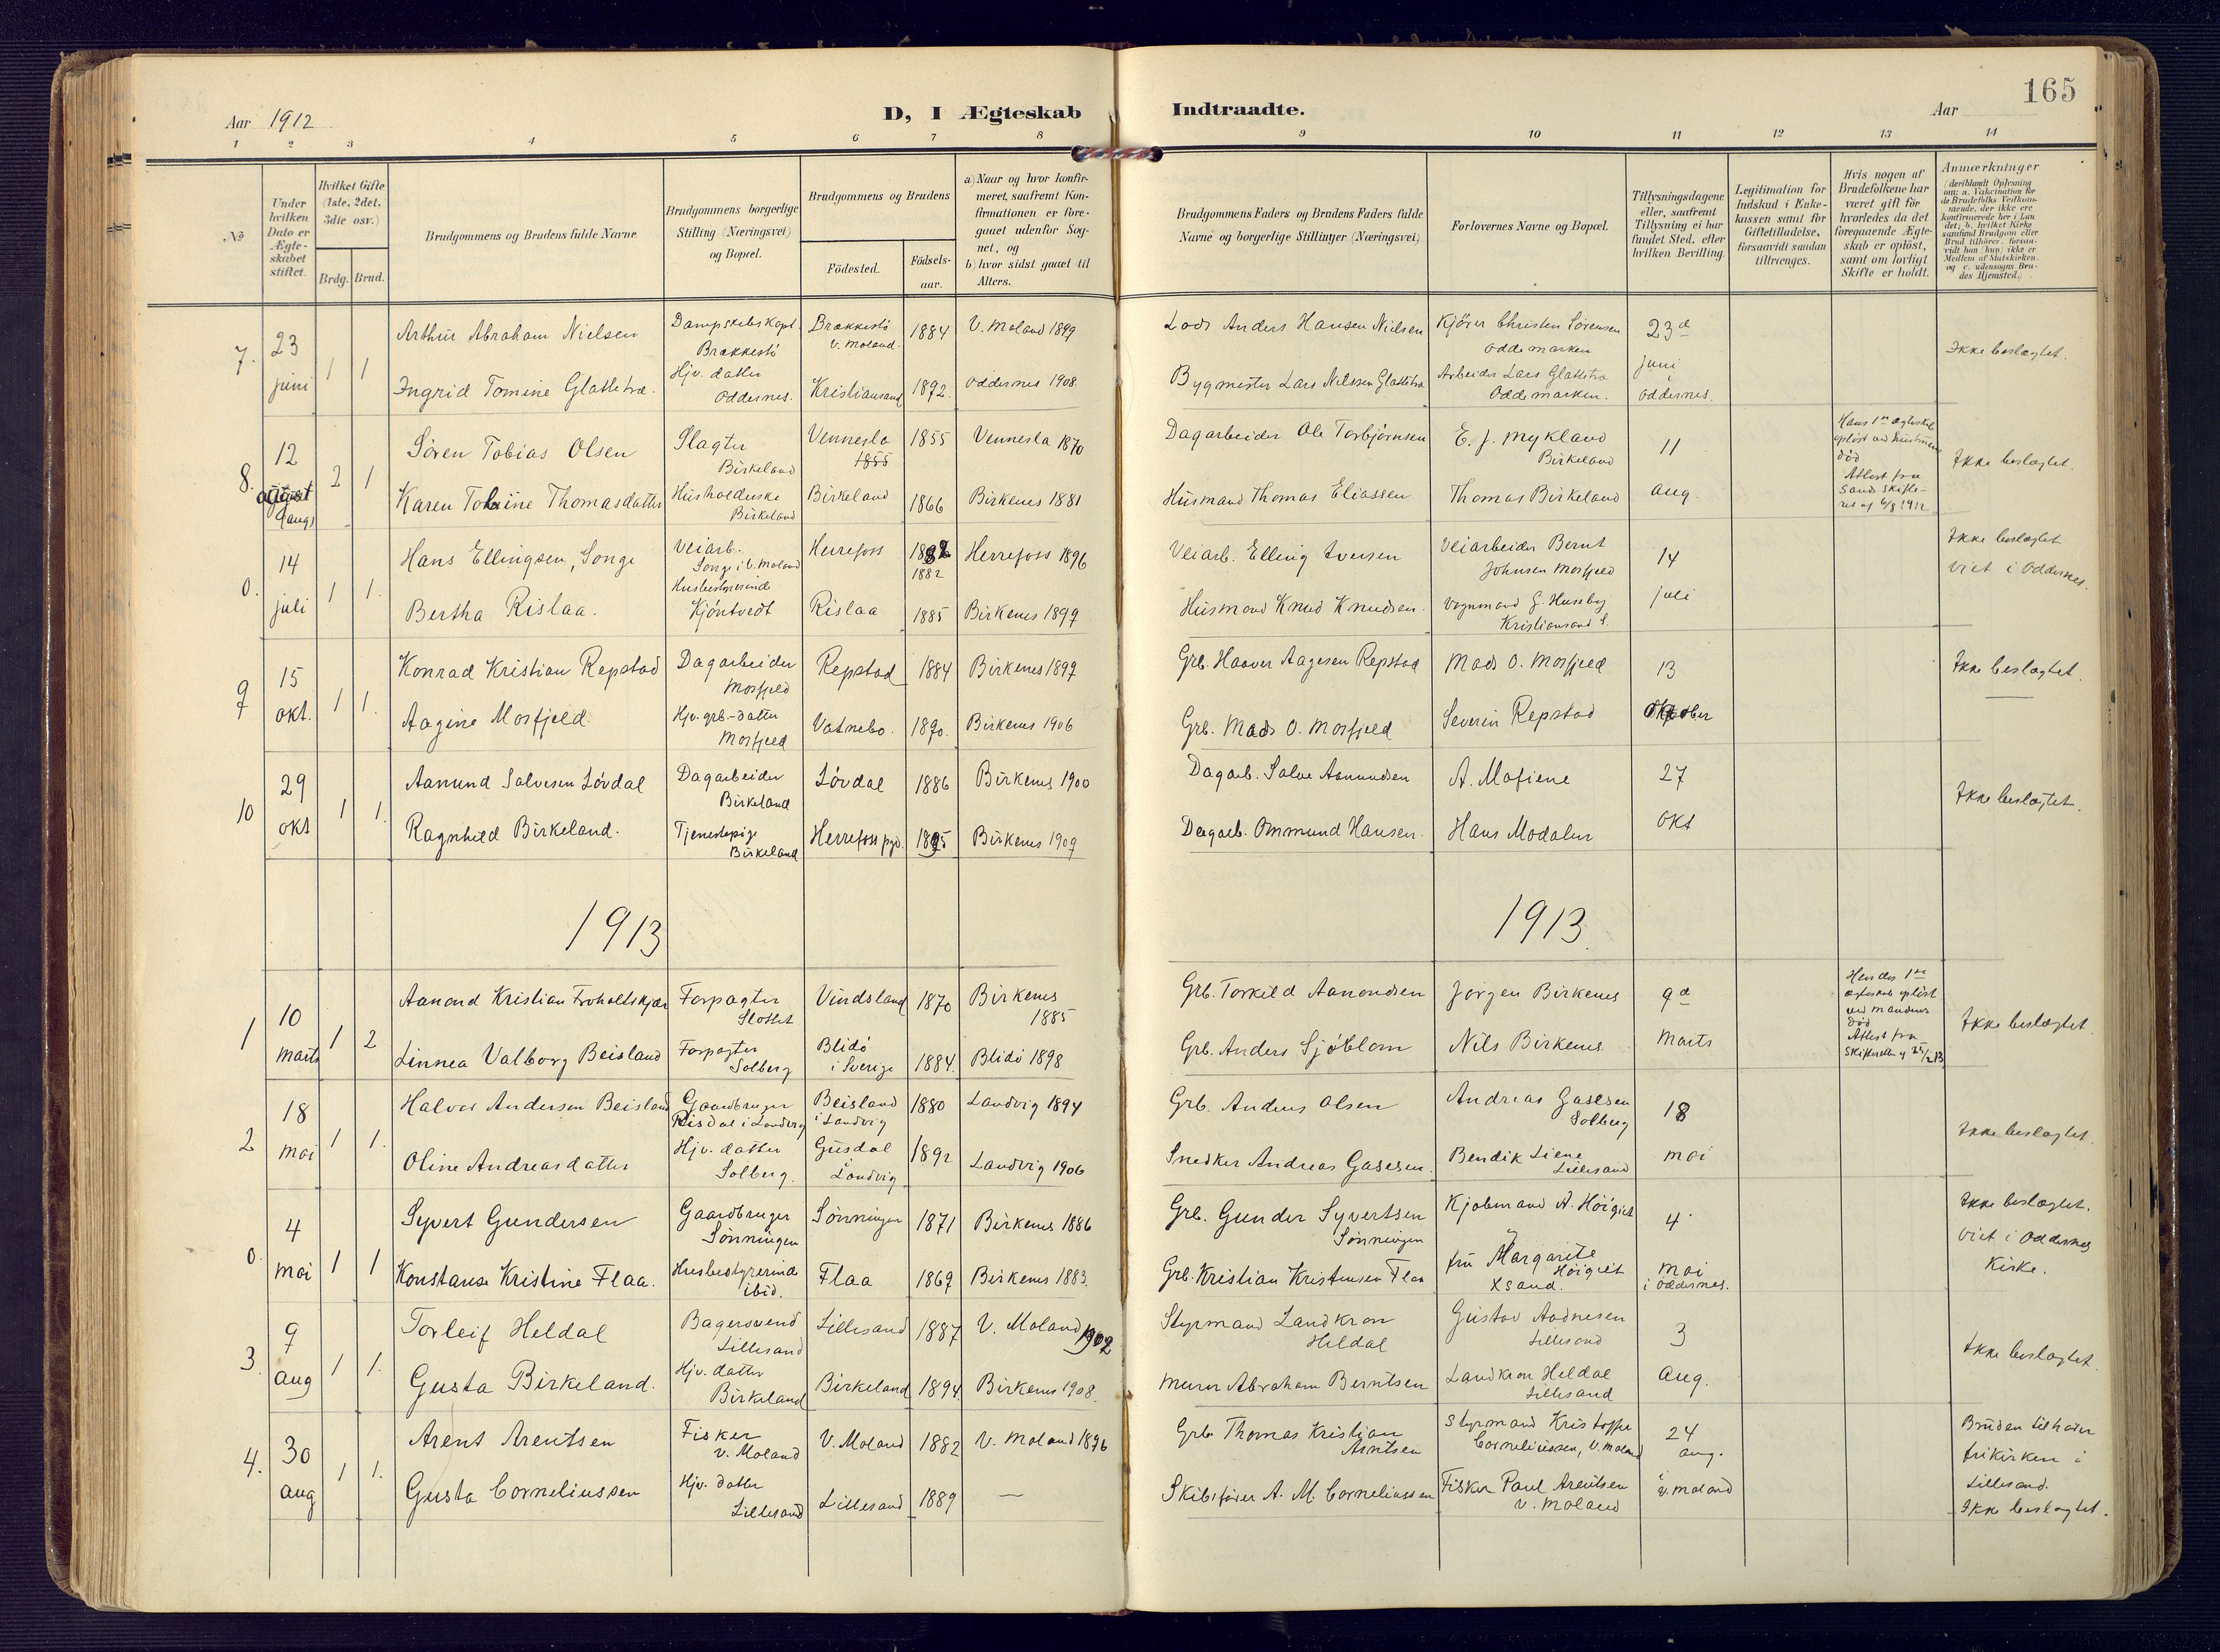 165
Aar 1912
D, I Ægteskab Indtraadte.
Aar
1 2 3 4 5 6 7 8 9 10 11 12 13 14
No
Under hvilken Dato er Ægte-skabet stiftet.
Hvilket Gifte (1ste, 2det, 3die osv.)
Brdg. Brud.
Brudgommens og Brudens fulde Navne
Brudgommens borgerlige Stilling (Næringsvei) og Bopæl.
Brudgommens og Brudens
Fødested.
Fødsels-aar.
a) Naar og hvor konfir-meret, saafremt Kon-firmationen er fore-gaaet udenfor Sog-net, og
b) hvor sidst gaaet til Alters.
Brudgommens Faders og Brudens Faders fulde Navne og borgerlige Stillinger (Næringsvei)
Forlovernes Navne og Bopæl.
Tillysningsdagene eller, saafremt Tillysning ei har fundet Sted, efter hvilken Bevilling.
Legitimation for Indskud i Enke-kassen samt for Giftetilladelse, forsaavidt saadan tiltrænges.
Hvis nogen af Brudefolkene har været gift før hvorledes da det foregaaende Ægte-skab er opløst, samt om lovligt Skifte er holdt.
Anmærkninger
(deriblandt Oplysning om: a. Vakcination for de Brudefolks Vedkom-mende, der ikke ere konfirmerede her i Lan det; b. hvilket Kirke samfund Brudgom eller Brud tilhører, forsaa-vidt han (hun) ikke er Medlem af Statskirken og c. udensogns Bru-des Hjemsted.)
7. 23 juni 1 1
Arthur Abraham Nielsen Dampskibskapt. Brækkestö Brækkestö V. Moland. 1884 V. Moland 1899 Lods Anders Hansen Nielsen Kjörer Christen Sörensen Oddemarken 23d
Ingrid Tomine Glattetræ. Hjv. datter Oddernes. Kristiansand 1892. Oddernes 1908. Bygmester Lars Nilssen Glattetræ Arbeider Lars Glattetræ Oddemarken. juni i Oddernes. Ikke beslægtet.
8. 12 august 9 augs 2 1
Sören Tobias Olsen Slagter Birkeland Vennesla 1855 1855 Vennesla 1870 Dagarbeider Ole Torbjörnsen E. J. Mykland Birkeland 11
Karen Tobine Thomasdatter Husholderske Birkeland Birkeland 1866 Birkenes 1881 Husmand Thomas Eliassen Thomas Birkeland aug
Hans 1ste ægteskab oplöst ved hustruens död Attest fra Sands Skifteret af 6/8 1912 Ikke beslægtet.
0. 14 juli 1 1.
Hans Ellingsen, Songe Veiarb. Songe i V. Moland Herrefoss 1882 1882 Herrefoss 1896 Veiarb. Elling Iversen Veiarbeider Bernt Johnsen Mosfjeld 14
Bertha Rislaa. Husbestyrerinde Kjöntvedt Rislaa 1885 Birkenes 1899 Husmand Knud Knudsen. Vognmand G. Huseby Kristiansand S. juli
Ikke beslægtet viet i Oddernes.
9 15 okt. 1 1.
Konrad Kristian Repstad Dagarbeider Mosfjeld Repstad 1884 Birkenes 1899 Grb. Haaver Aagesen Repstad Mads O. Mosfjeld 13
Aagine Mosfjeld Hjv. grb-datter Mosfjeld Vatnebo. 1890. Birkenes 1906 Grb. Mads O. Mosfjeld Severin Repstad Oktober
Ikke beslægtet.
10 29 okt 1 1.
Aanund Salvesen Lövdal Dagarbeider Birkeland Lövdal 1886 Birkenes 1900 Dagarb. Salve Aanundsen A. Mofiene 27
Ragnhild Birkeland. Tjenestepige Birkeland Herrefoss pgd. 1895 Birkenes 1909 Dagarb. Ommund Hansen. Hans Modalen okt
Ikke beslægtet.
1913 1913.
1 10 marts 1 2
Aanond Kristian Froholtskjær Forpagter Slottet Vindsland 1870 Birkenes 1885 Grb. Torkild Aanondsen Jörgen Birkenes 9d
Linnea Valborg Beisland Forpagter Solberg Blidö i Sverige 1884. Blidö 1898 Grb. Anders Sjöblom Nils Birkenes. Marts
Hendes 1ste ægteskab oplöst ved mandens död Attest fra Skifteretten af 25/2 13 Ikke beslægtet.
2 18 mai 1 1.
Halvor Andersen Beisland Gaardbruger Risdal i Landvig Beisland i Landvig 1880 Landvig 1894 Grb. Anders Olsen Andreas Gasesen Solberg 18
Oline Andreasdatter Hjv. datter Solberg. Gusdal i Landvig 1892 Landvig 1906 Snedker Andreas Gasesen. Bendik Liene Lillesand mai
Ikke beslægtet.
0. 4 mai 1 1
Syvert Gundersen Gaardbruger Sönningen Sönningen 1871 Birkenes 1886 Grb. Gunder Syvertsen Sönningen Kjøbmand A. Höigilt 4
Konstanse Kristine Flaa. Husbestyrerinde ibid. Flaa 1869 Birkenes 1883. Grb. Kristian Kristensen Flaa fru Margarite Höigilt Xsand. mai i Oddernes.
Ikke beslægtet. viet i Oddernes Kirke.
3. 9 aug 1 1.
Torleif Heldal Bagersvend Lillesand Lillesand 1887 V. Moland 1902 Styrmand Landkron Heldal Gustav Aadnesen Lillesand 3
Gusta Birkeland. Hjv. datter Birkeland Birkeland 1894. Birkenes 1908. Murer Abraham Berntsen Landkron Heldal Lillesand Aug.
Ikke beslægtet.
4. 30 aug 1 1.
Arent Arentsen Fisker V. Moland V. Moland 1882 V. Moland 1896 Grb Thomas Kristian Arntsen Styrmand Kristoffer Corneliussen, V. Moland 24 aug.
Gusta Corneliussen Hjv. datter Lillesand Lillesand 1889 — Skibsförer A. M. Corneliussen Fisker Paul Arentsen V. Moland i V. Moland
Bruden tilhører frikirken i Lillesand. Ikke beslægtet.